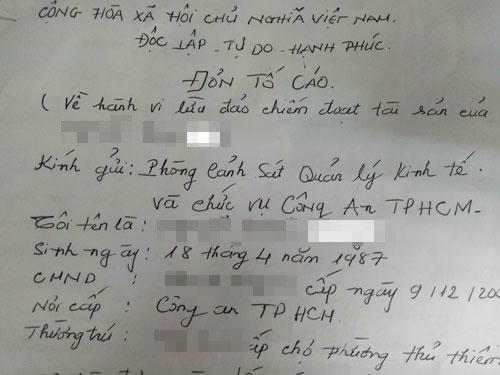 CỘNG HÒA XÃ HỘI CHỦ NGHĨA VIỆT NAM.
ĐỘC LẬP - TỰ DO - HẠNH PHÚC.
ĐƠN TỐ CÁO.
( Về hành vi lừa đảo chiếm đoạt tài sản của
Kính gửi: Phòng Cảnh Sát Quản lý Kinh tế.
và chức vụ Công An TPHCM-
Tôi tên là :
Sinh ngày : 18 tháng 4 năm 1987
CMND : cấp ngày 9/12/200
Nơi cấp : Công an TP HCM.
Thường trú : ấp chợ phường thủ thiêm